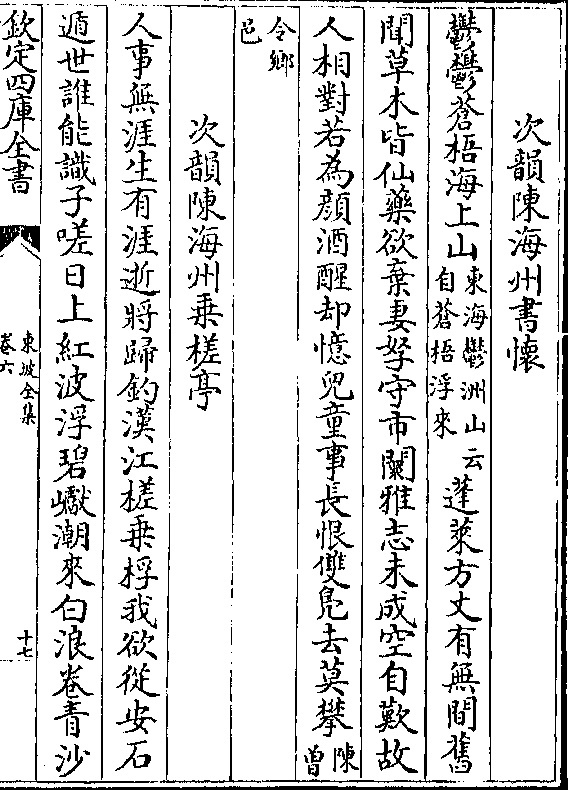 次韻陳海州書懷
鬱鬱蒼梧海上山東海鬱洲山云自蒼梧浮來蓬萊方丈有無間舊
聞草木皆仙藥欲棄妻孥守市闤雅志未成空自歎故
人相對若為顔酒醒却憶兒童事長恨雙鳬去莫攀陳曾
令鄉邑
次韻陳海州乗槎亭
人事無涯生有涯逝將歸釣漢江槎乗桴我欲從安石
遁世誰能識子嗟日上紅波浮碧巘潮來白浪卷青沙
欽定四庫全書
東坡全集
卷六
十七